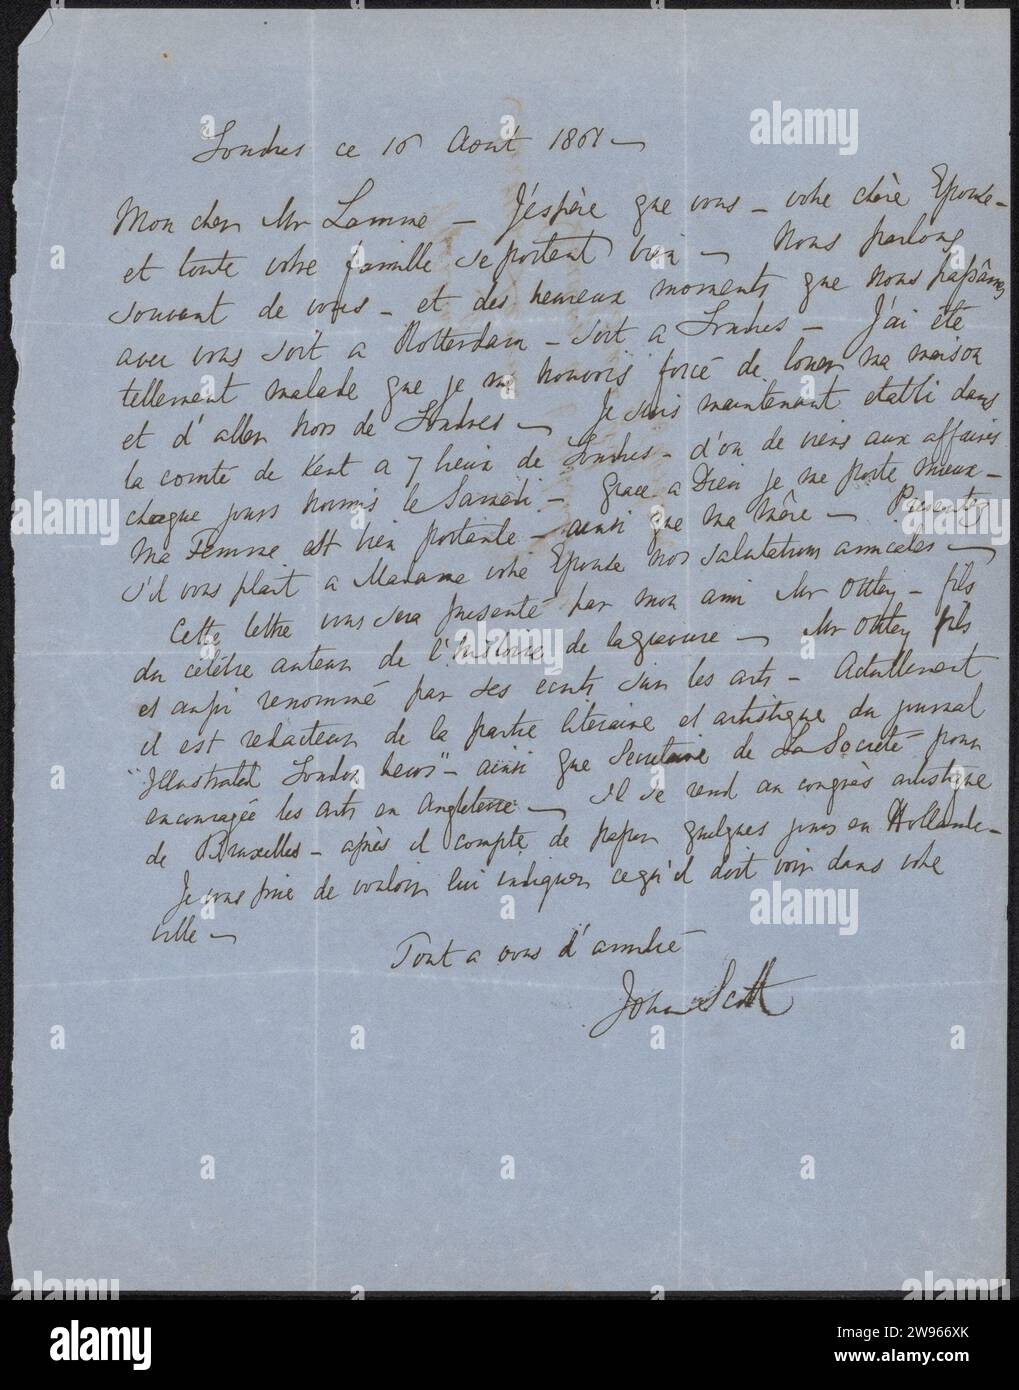 Londres ce 16 Aout 1861 —
Mon cher Mr Lamme — J'éspère que vous — votre chère Epouse —
et toute votre famille se portent bien — Nous parlons
souvent de vous — et des heureux moments que nous passâmes
avec vous soit a Rotterdam — soit a Londres — J'ai été
tellement malade que je me trouvois forcé de louer ma maison
et d'aller hors de Londres — Je suis maintenant etabli dans
la comté de Kent a 7 lieux de Londres — d'ou je viens aux affaires
chaque jours hormis le Samedi — Grace a Dieu je me porte mieux —
Ma Femme est bien portante — ainsi que ma mère — Presentez
s'il vous plait a Madame votre Epouse nos salutations amicales —
Cette lettre vous sera presenté par mon ami Mr Ottley — fils
du célêtre auteur de l'histoire de la gravure — Mr Ottley fils
est aussi renommé par ses ecrits sur les arts — Actuellement
il est redacteur de la partie literaire et artistique du journal
"Illustrated London News" — ainsi que Secretaire de La Societé pour
encouragée les arts en Angleterre — Il se rend au congrès artistique
de Bruxelles — après il compte de passer quelques jours en Hollande —
Je vous prie de vouloir lui indiquer ce qu'il doit voir dans votre
ville —
Tout a vous d'amitié
John Scott
alamy
a
alamy
Image ID: 2W966XK
www.alamy.com